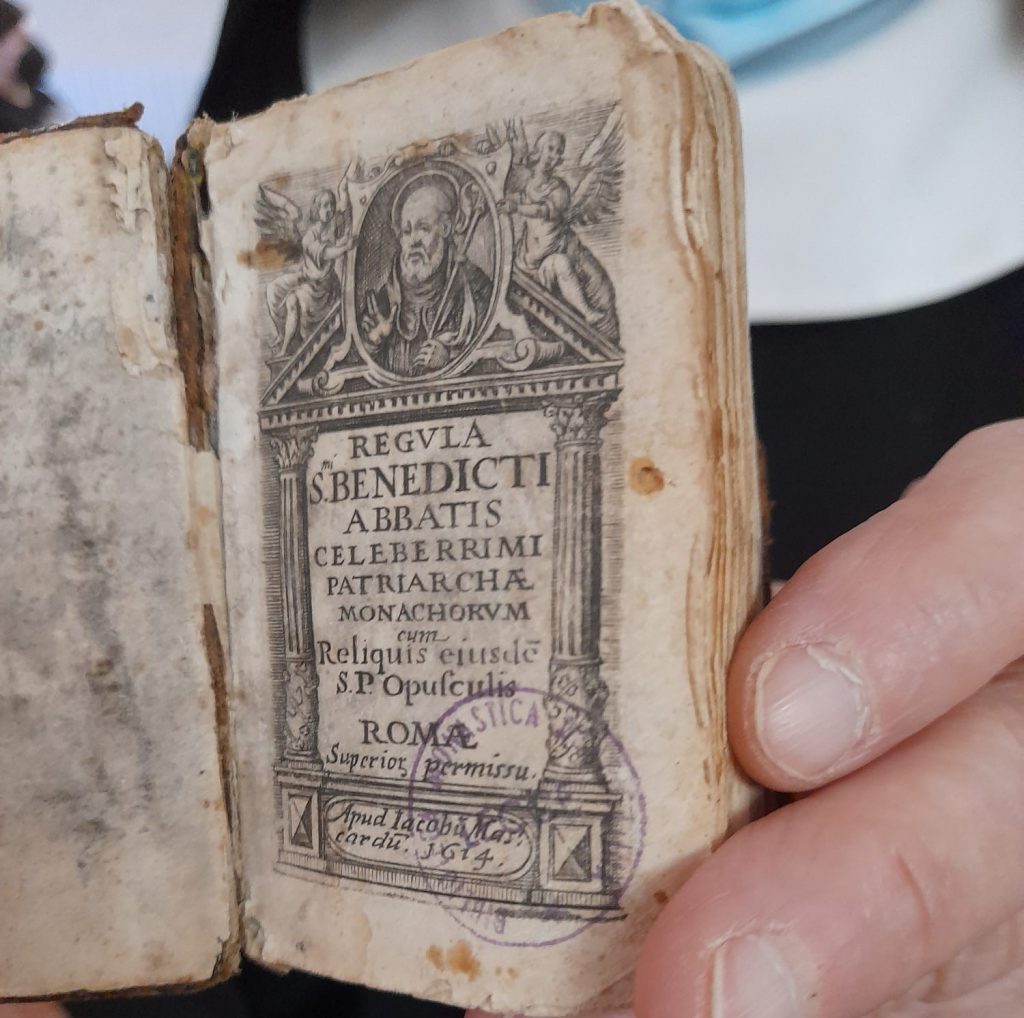 REGVLA
S.mi BENEDICTI
ABBATIS
CELEBERRIMI
PATRIARCHÆ
MONACHORVM
cum
Reliquis eiusdē
S.P. Opuſculis
ROMÆ
Superioꝝ permissu.
Apud Iacobū Mas,
cardū. 1614.